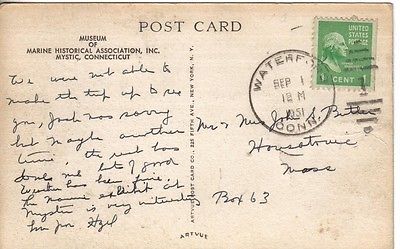 POST CARD
MUSEUM
OF
MARINE HISTORICAL ASSOCIATION, INC.
MYSTIC, CONNECTICUT
We were not able to
make the trip up to see
you, Jack was sorry
but maybe another
time, the rest has
done us lots of good
Weather has been fine,
the marine exhibit at
Mystic is very interesting
ARTVUE POST CARD CO., 225 FIFTH AVE., NEW YORK, N. Y.
ARTVUE
WATERFORD
SEP 1
12 M
1951
CONN.
UNITED
STATES
POSTAGE
1 CENT 1
Mr & Mrs S. Butler
Housatonic
Mass
Box 63